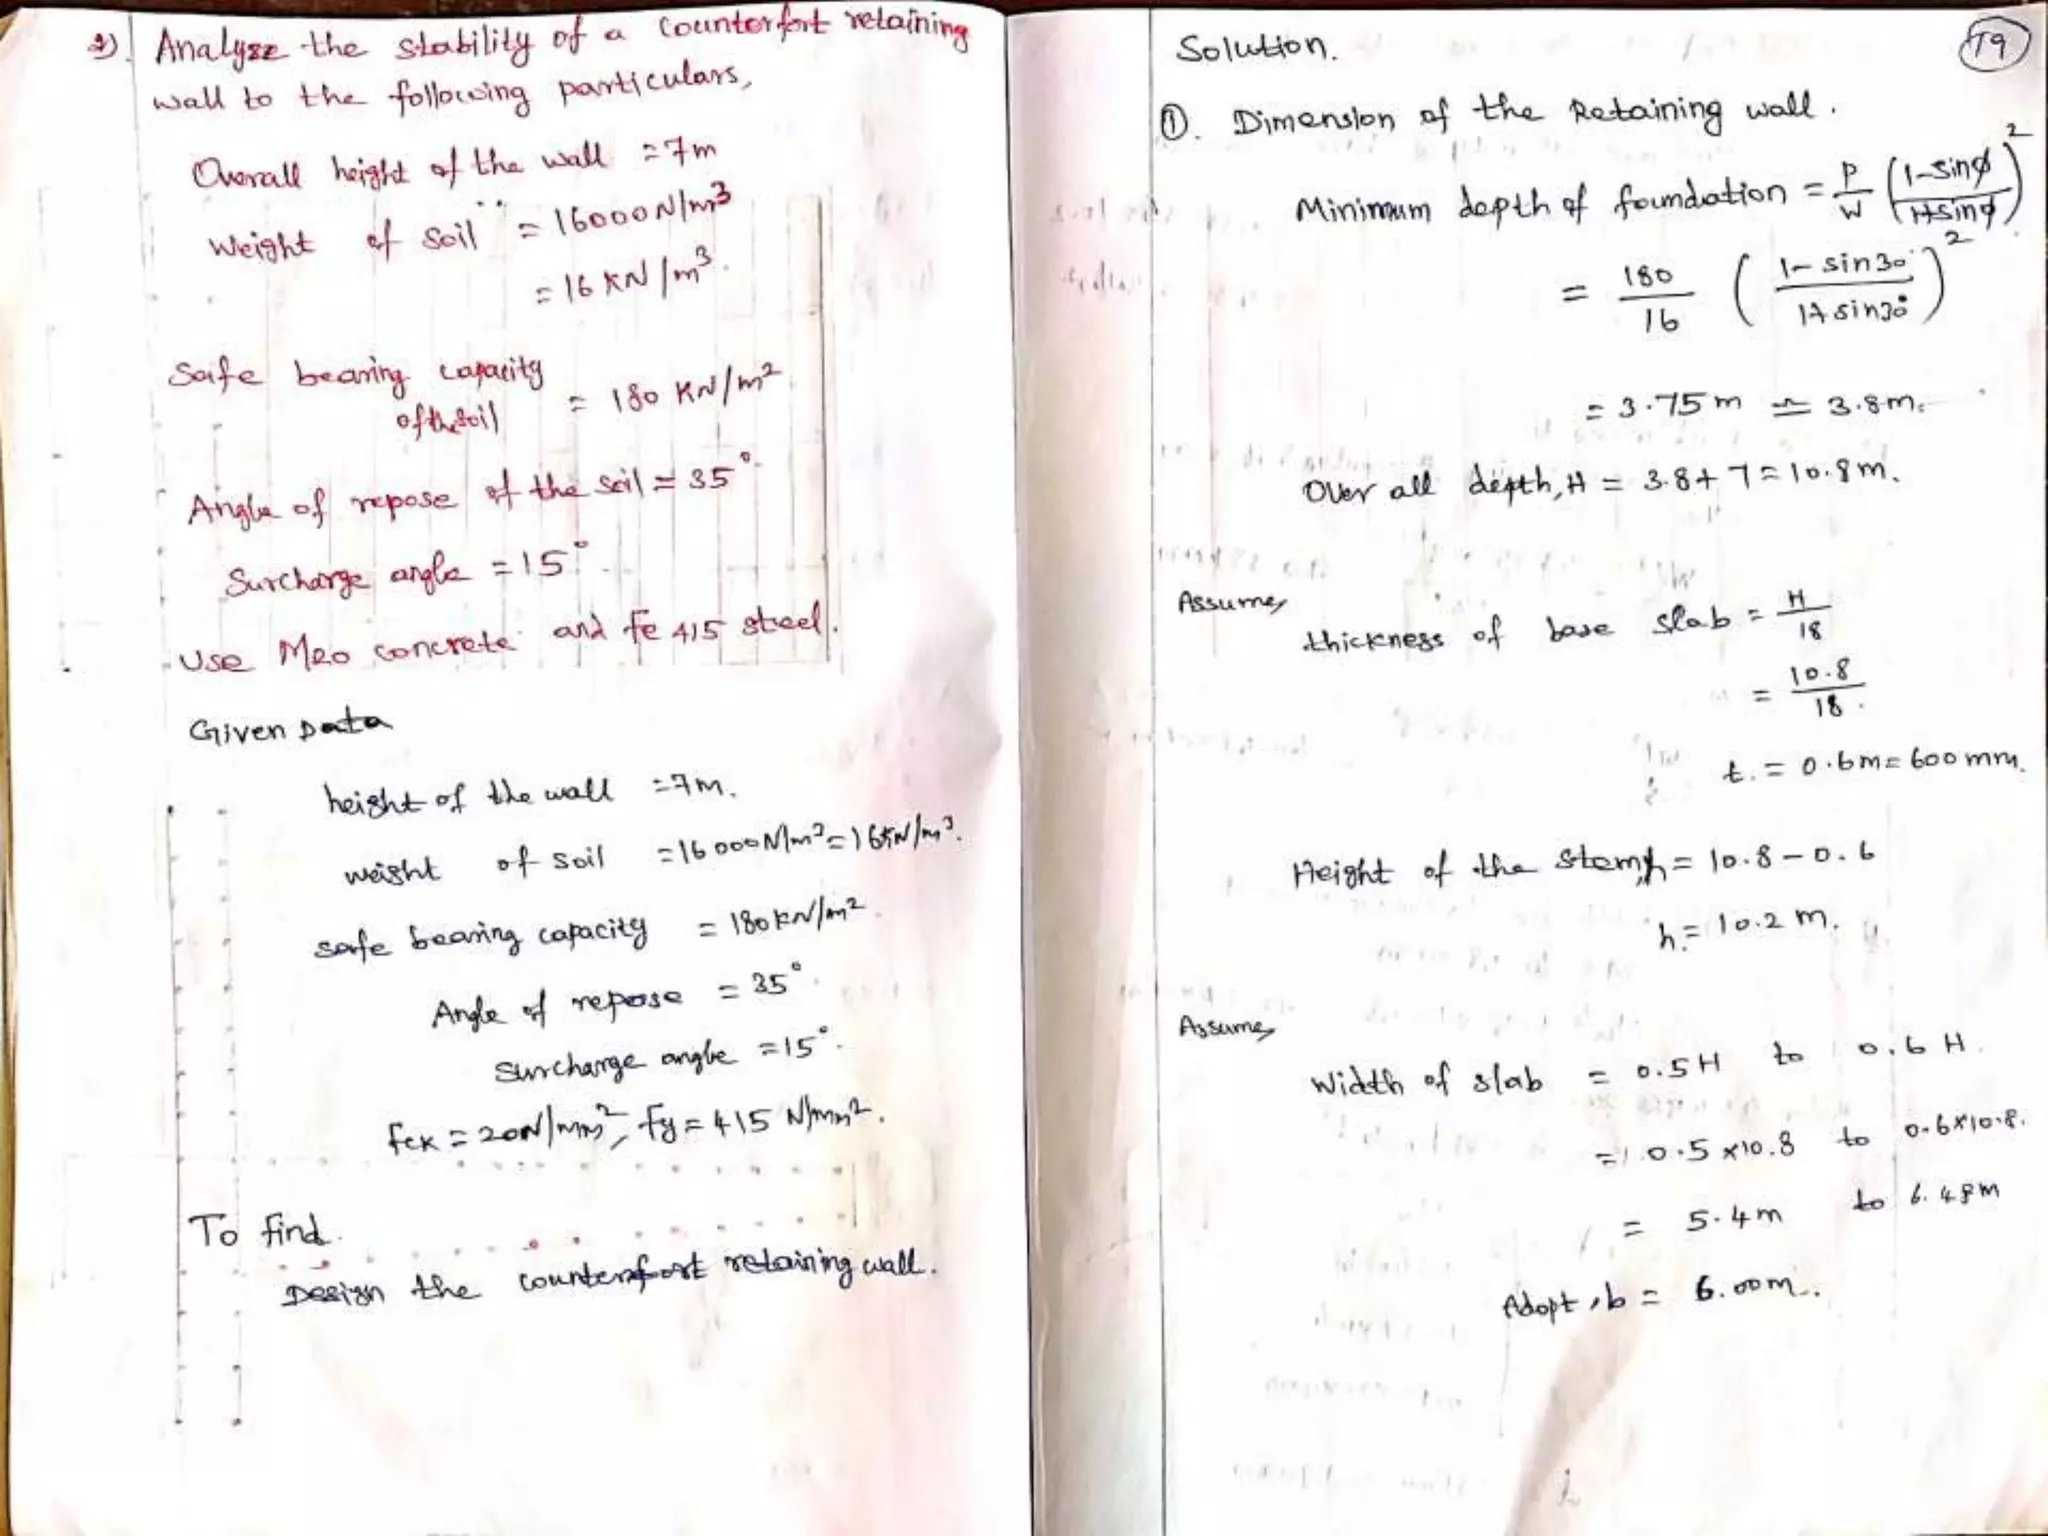 2) Analyze the stability of a counterfort retaining
wall to the following particulars,
Overall height of the wall = 7m
Weight of soil = 16000 N/m³
= 16 KN/m³.
Safe bearing capacity
of the soil = 180 KN/m²
Angle of repose of the soil = 35°.
Surcharge angle = 15°.
Use M20 concrete and Fe 415 steel.
Given Data
height of the wall = 7m.
weight of soil = 16000 N/m³ = 16 kN/m³.
safe bearing capacity = 180 kN/m².
Angle of repose = 35°.
surcharge angle = 15°.
fck = 20N/mm², fy = 415 N/mm².
To find.
Design the counterfort retaining wall.
Solution.
T9
①. Dimension of the Retaining wall.
Minimum depth of foundation = P/W (1-sinϕ/1+sinϕ)²
= 180/16 (1-sin30°/1+sin30°)²
= 3.75m ≃ 3.8m.
Over all depth, H = 3.8+7 = 10.8m.
Assume,
thickness of base slab = H/18
= 10.8/18.
t. = 0.6m = 600mm.
Height of the stem, h = 10.8 - 0.6
h. = 10.2 m.
Assume,
Width of slab = 0.5H to 0.6H.
= 0.5 x10.8 to 0.6x10.8.
= 5.4m to 6.48m
Adopt, b = 6.00m.